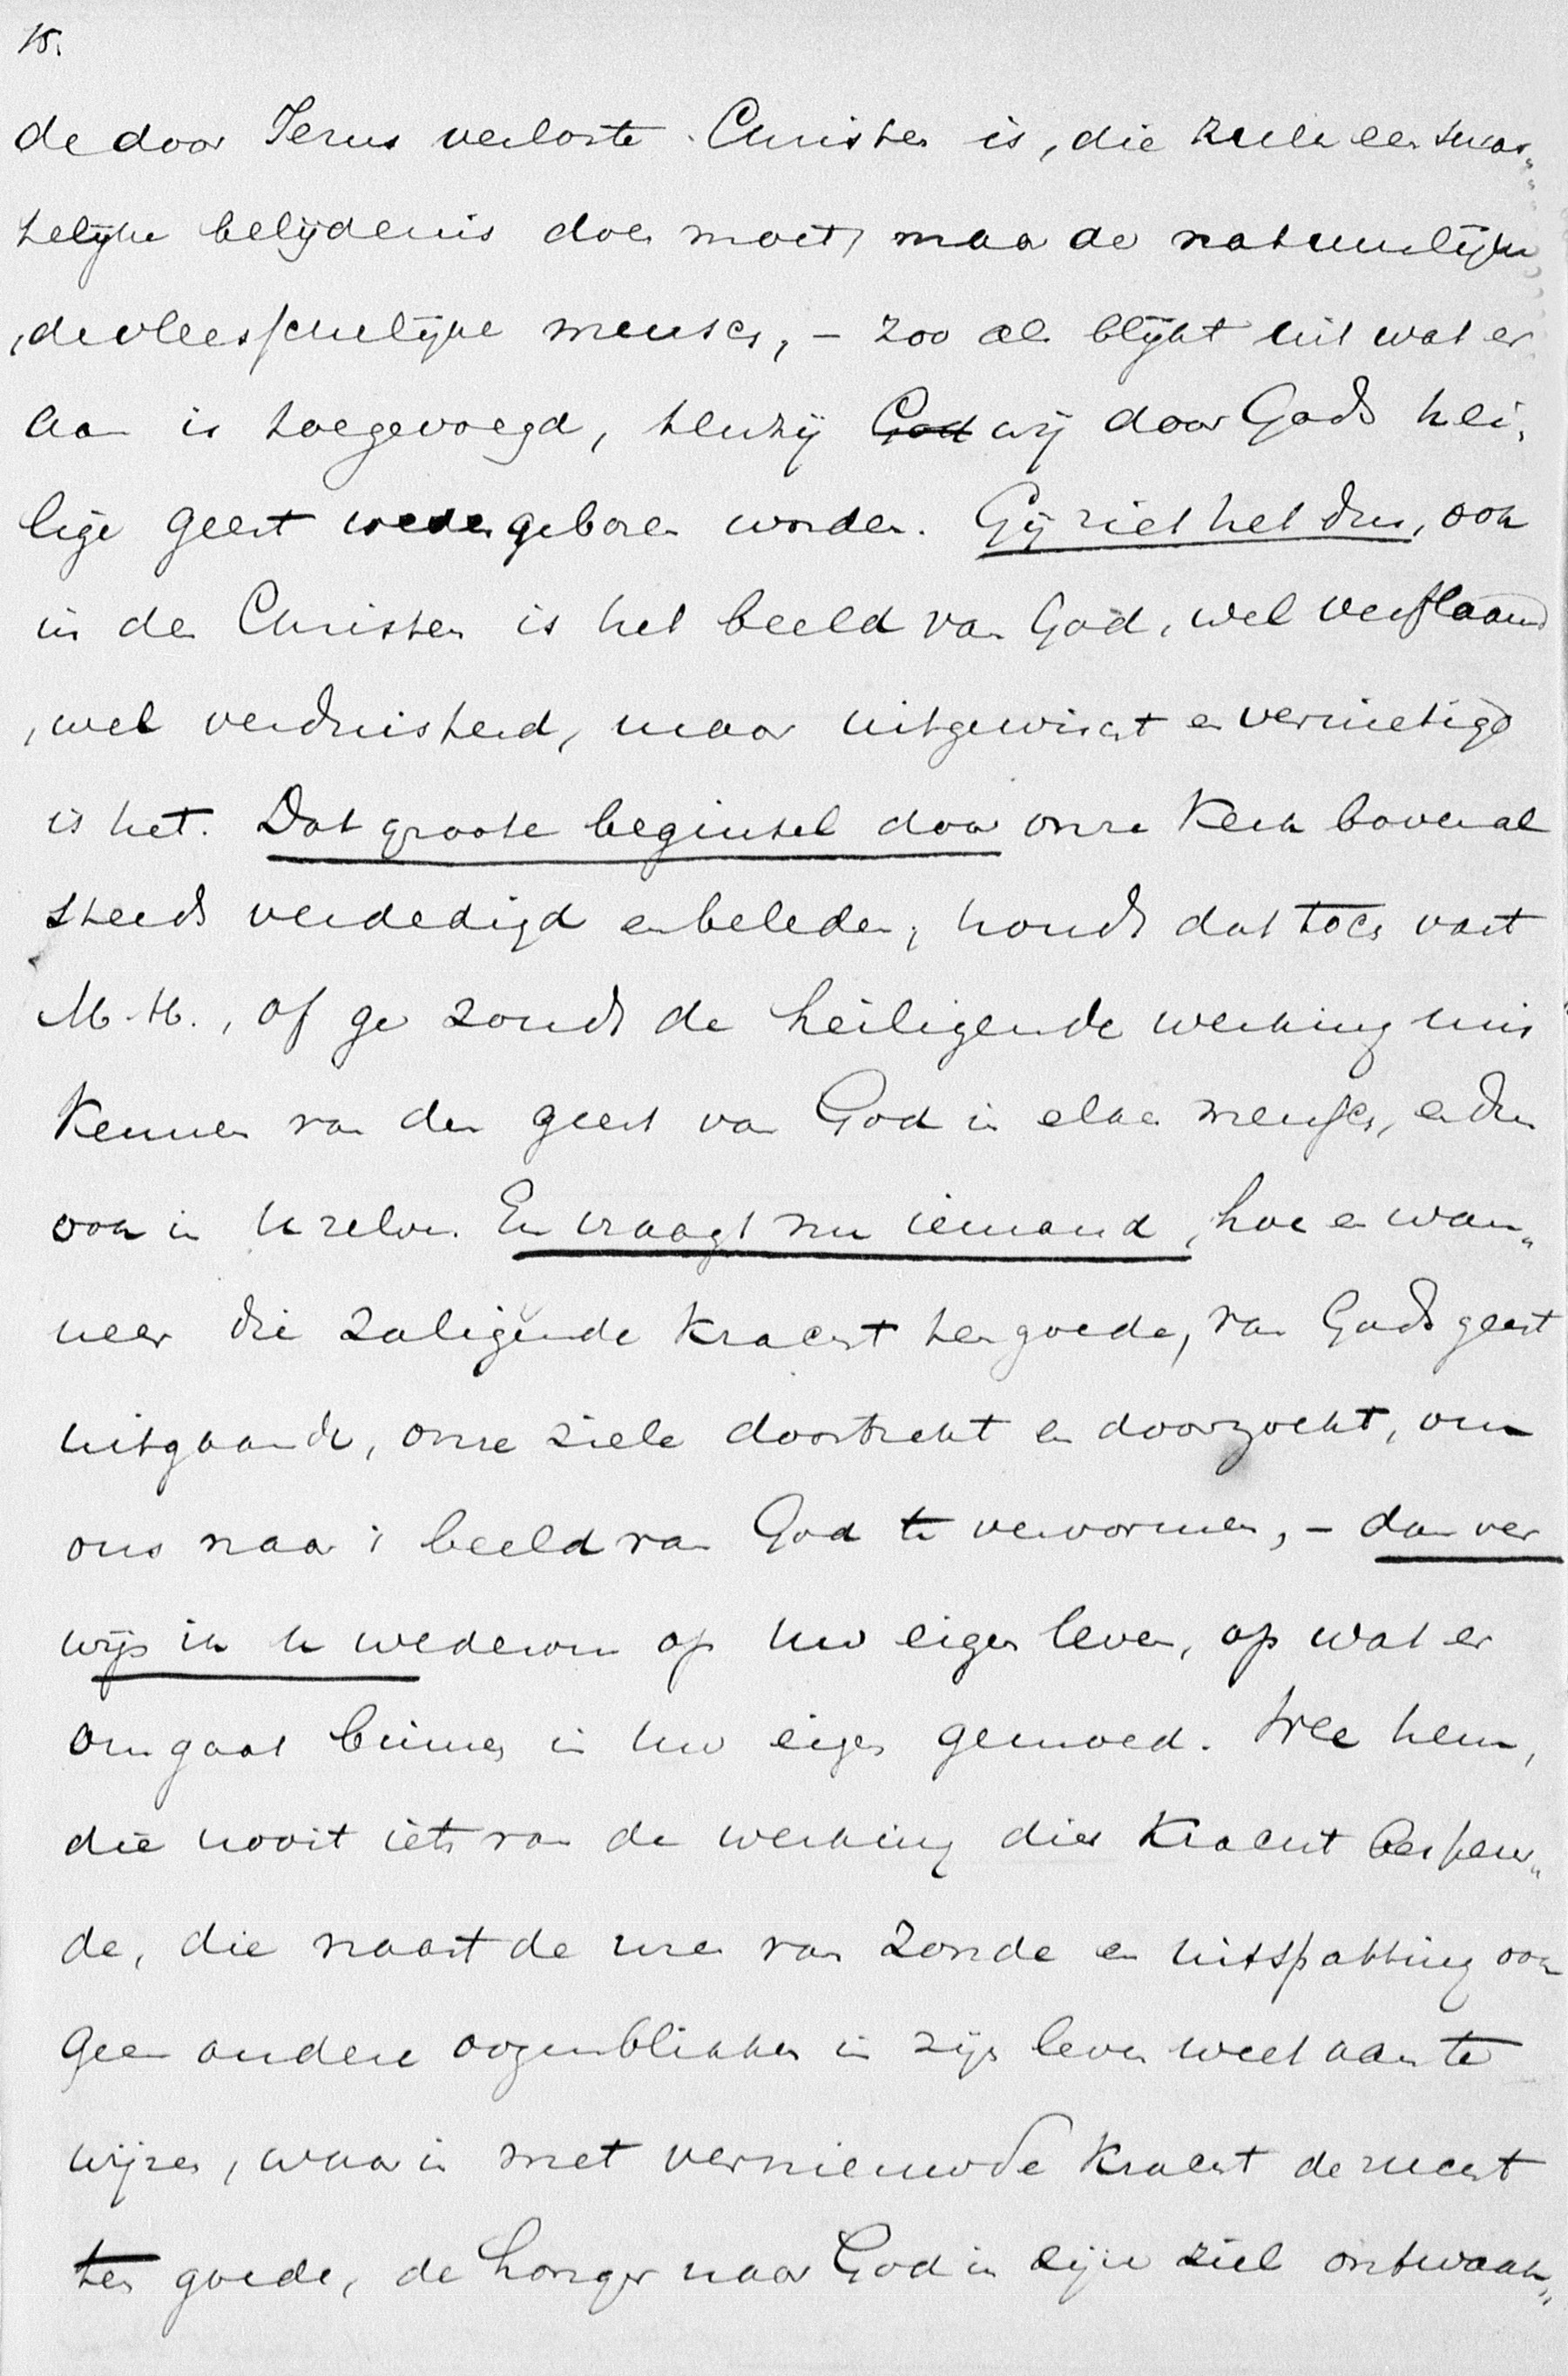 15.
de door Jezus verloste Christen is, die zulk een smar„
telijke belijdenis doen moet, maar de natuurlijke
, de vleeschelijke mensch, – zoo als blijkt uit wat er
aan is toegevoegd, tenzij God wij door Gods hei„
lige geest wedergeboren worden. Gij ziet het dus, ook
in den Christen is het beeld van God, wel verflaauwd
, wel verduisterd, maar uitgewischt en vernietigd
is het. Dat groote beginsel door onze Kerk bovenal
steeds verdedigd en beleden, houdt dat toch vast
M. H., of ge zoudt de heiligende werking mis
kennen van den geest van God in elken mensch, en dus
ook in u zelven. En vraagt nu iemand, hoe en wan„
neer die zaligende kracht ten goede, van Gods geest
uitgaande, onze ziele doortrekt en doorzoekt, om
ons naar 't beeld van God te vervormen, – dan ver
wijs ik u wederom op uw eigen leven, op wat er
omgaat binnen in uw eigen gemoed. Wee hem,
die nooit iets van de werking dier kracht bespeur„
de, die naast de uren van zonde en uitspatting ook
geen andere oogenblikken in zijn leven weet aan te
wijzen, waar in met vernieuwde kracht de zucht
ten goede, de honger naar God in zijn ziel ontwaak„